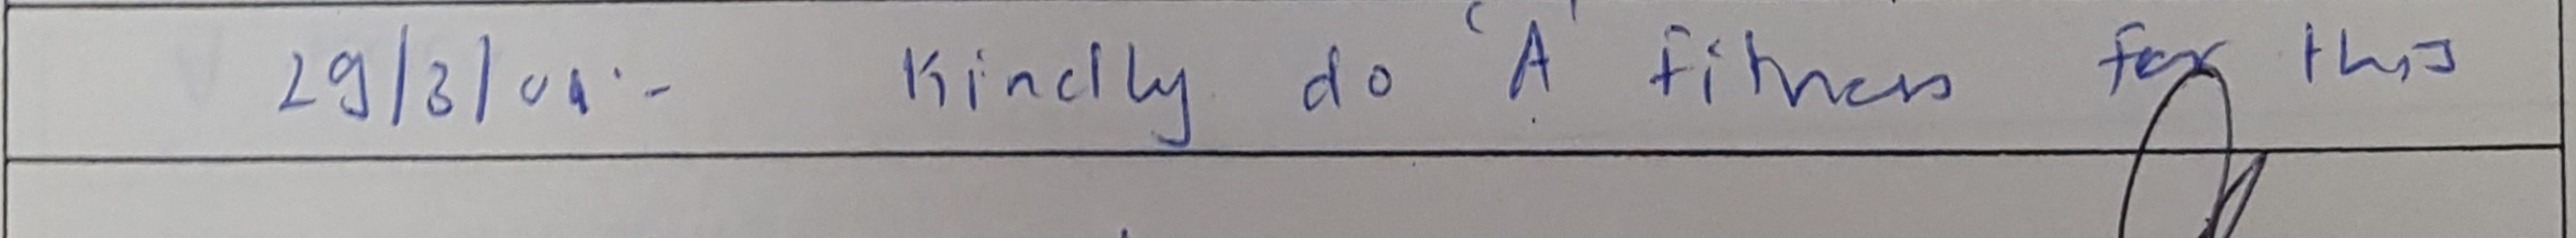 29/3/01:- Kindly do 'A' fitness for this